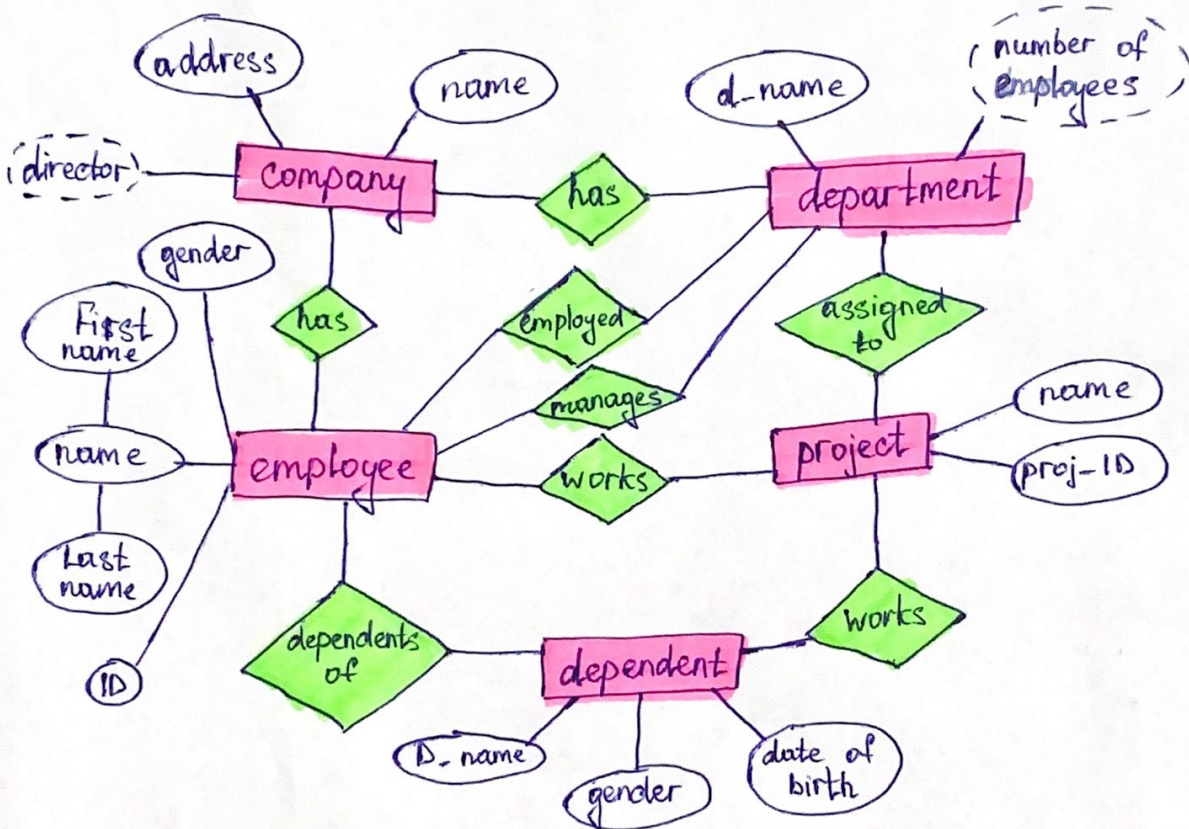 address
name
d_name
number of
employees
director
company
has
department
gender
First
name
has
employed
assigned
to
manages
name
name
employee
works
project
proj_ID
Last
name
dependents
of
works
ID
dependent
D_name
gender
date of
birth